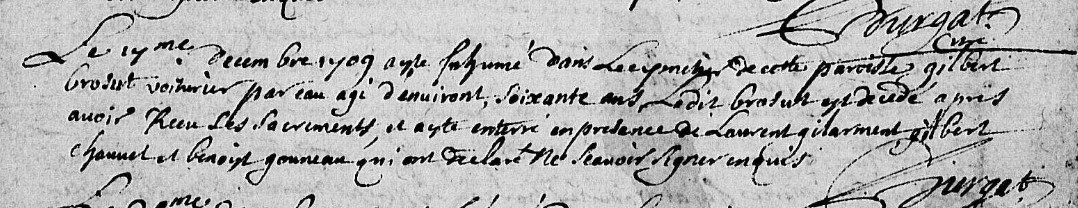 Durgat.
curé
Le 17me decembre 1709 a esté Inhumé dans Le cymetier de cette paroisse gilbert
brosut voiturier par eau agé d'environt soixante ans Ledit brosut est decedé apres
avoir Receu Les sacrements et a esté enterré en presence de Laurent gilarment gilbert
chauvet et benoist gouneau qui ont declaré Ne scavoir signer enquis
Durgat.
Le me